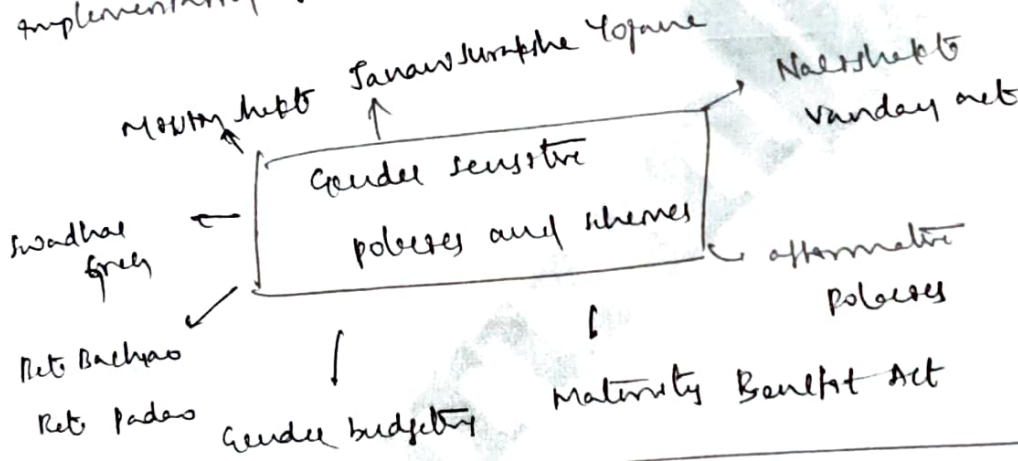 Janani Suraksha Yojana
Narishakti
vandan act
Gender sensitive
policies and schemes
Swadhar
Greh
affirmative
policies
Beti Bachao
Beti padao
Gender budgeting
Maternity Benefit Act